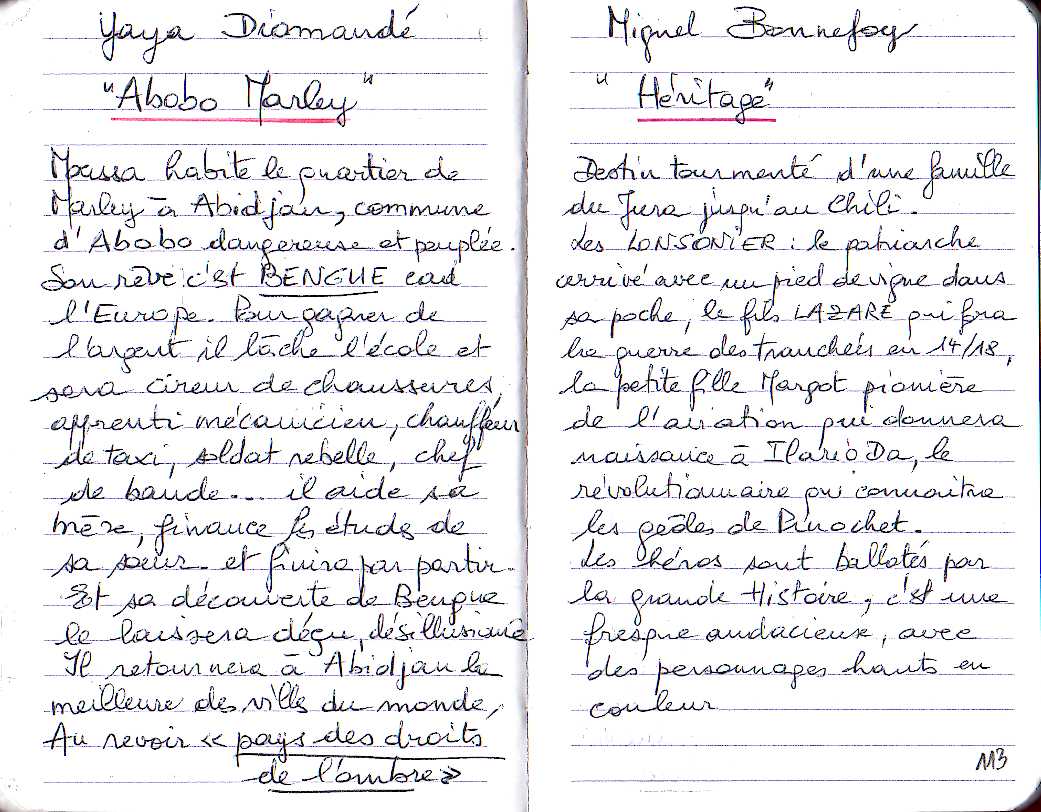 Yaya Diomandé
"Abobo Marley"
Moussa habite le quartier de
Marley à Abidjan, commune
d'Abobo dangereuse et peuplée.
Son rêve c'est BENGUE cad
l'Europe. Pour gagner de
l'argent il lâche l'école et
sera cireur de chaussures,
apprenti mécanicien, chauffeur
de taxi, soldat rebelle, chef
de bande... il aide sa
mère, finance les études de
sa sœur. et finira par partir.
Et sa découverte de Bengue
le laissera déçu, désillusionné
Il retournera à Abidjan la
meilleure des villes du monde,
Au revoir « pays des droits
de l'ombre »
Miguel Bonnefoy
"Héritage"
Destin tourmenté d'une famille
du Jura jusqu'au Chili.
Les LONSONIER : le patriarche
arrivé avec un pied de vigne dans
sa poche, le fils LAZARE qui fera
la guerre des tranchées en 14/18,
la petite fille Margot pionière
de l'aviation qui donnera
naissance à Ilario Da, le
révolutionnaire qui connaitra
les geôles de Pinochet.
Les héros sont ballotés par
la grande Histoire, c'est une
fresque audacieuse, avec
des personnages hauts en
couleur
113